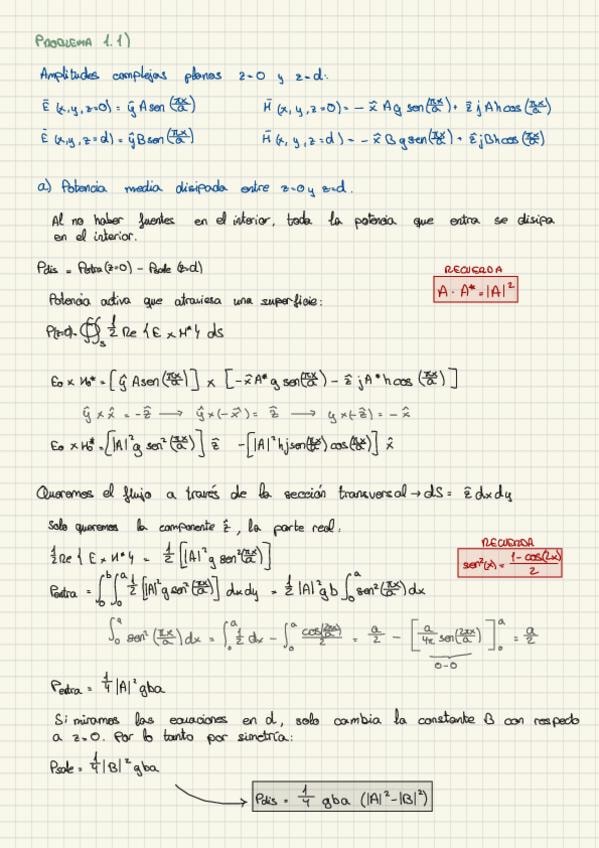 PROBLEMA 1.1)
Amplitudes complejas planos z=0 y z=d:
Ē (x,y,z=0) = ŷ A sen(πx/a)    H̄ (x,y,z=0) = - x̂ A g sen(πx/a) + ẑ j A h cos(πx/a)
Ē (x,y,z=d) = ŷ B sen(πx/a)    H̄ (x,y,z=d) = - x̂ B g sen(πx/a) + ẑ j B h cos(πx/a)
a) Potencia media disipada entre z=0 y z=d.
Al no haber fuentes en el interior, toda la potencia que entra se disipa
en el interior.
Pdis = Pentra (z=0) - Psale (z=d)
RECUERDA
A · A* = |A|²
Potencia activa que atraviesa una superficie:
P(z=0) = ∯s 1/2 Re {E x H*} ds
E₀ x H₀* = [ŷ A sen(πx/a)] x [-x̂ A* g sen(πx/a) - ẑ j A* h cos(πx/a)]
ŷ x x̂ = -ẑ → ŷ x (-x̂) = ẑ → y x (-ẑ) = - x̂
E₀ x H₀* = [|A|² g sen²(πx/a)] ẑ - [|A|² h j sen(πx/a) cos(πx/a)] x̂
Queremos el flujo a través de la sección transversal → dS = ẑ dx dy
Solo queremos la componente ẑ, la parte real:
1/2 Re {E x H*} = 1/2 [|A|² g sen²(πx/a)]
RECUERDA
sen²(x) = (1 - cos(2x))/2
Pentra = ∫₀ᵇ ∫₀ᵃ 1/2 [|A|² g sen²(πx/a)] dx dy = 1/2 |A|² g b ∫₀ᵃ sen²(πx/a) dx
∫₀ᵃ sen²(πx/a) dx = ∫₀ᵃ 1/2 dx - ∫₀ᵃ cos(2πx/a)/2 = a/2 - [a/4π sen(2πx/a)]₀ᵃ = a/2
0-0
Pentra = 1/4 |A|² gba
Si miramos las ecuaciones en d, solo cambia la constante B con respecto
a z=0. Por lo tanto por simetría:
Psale = 1/4 |B|² gba
Pdis = 1/4 gba (|A|²-|B|²)